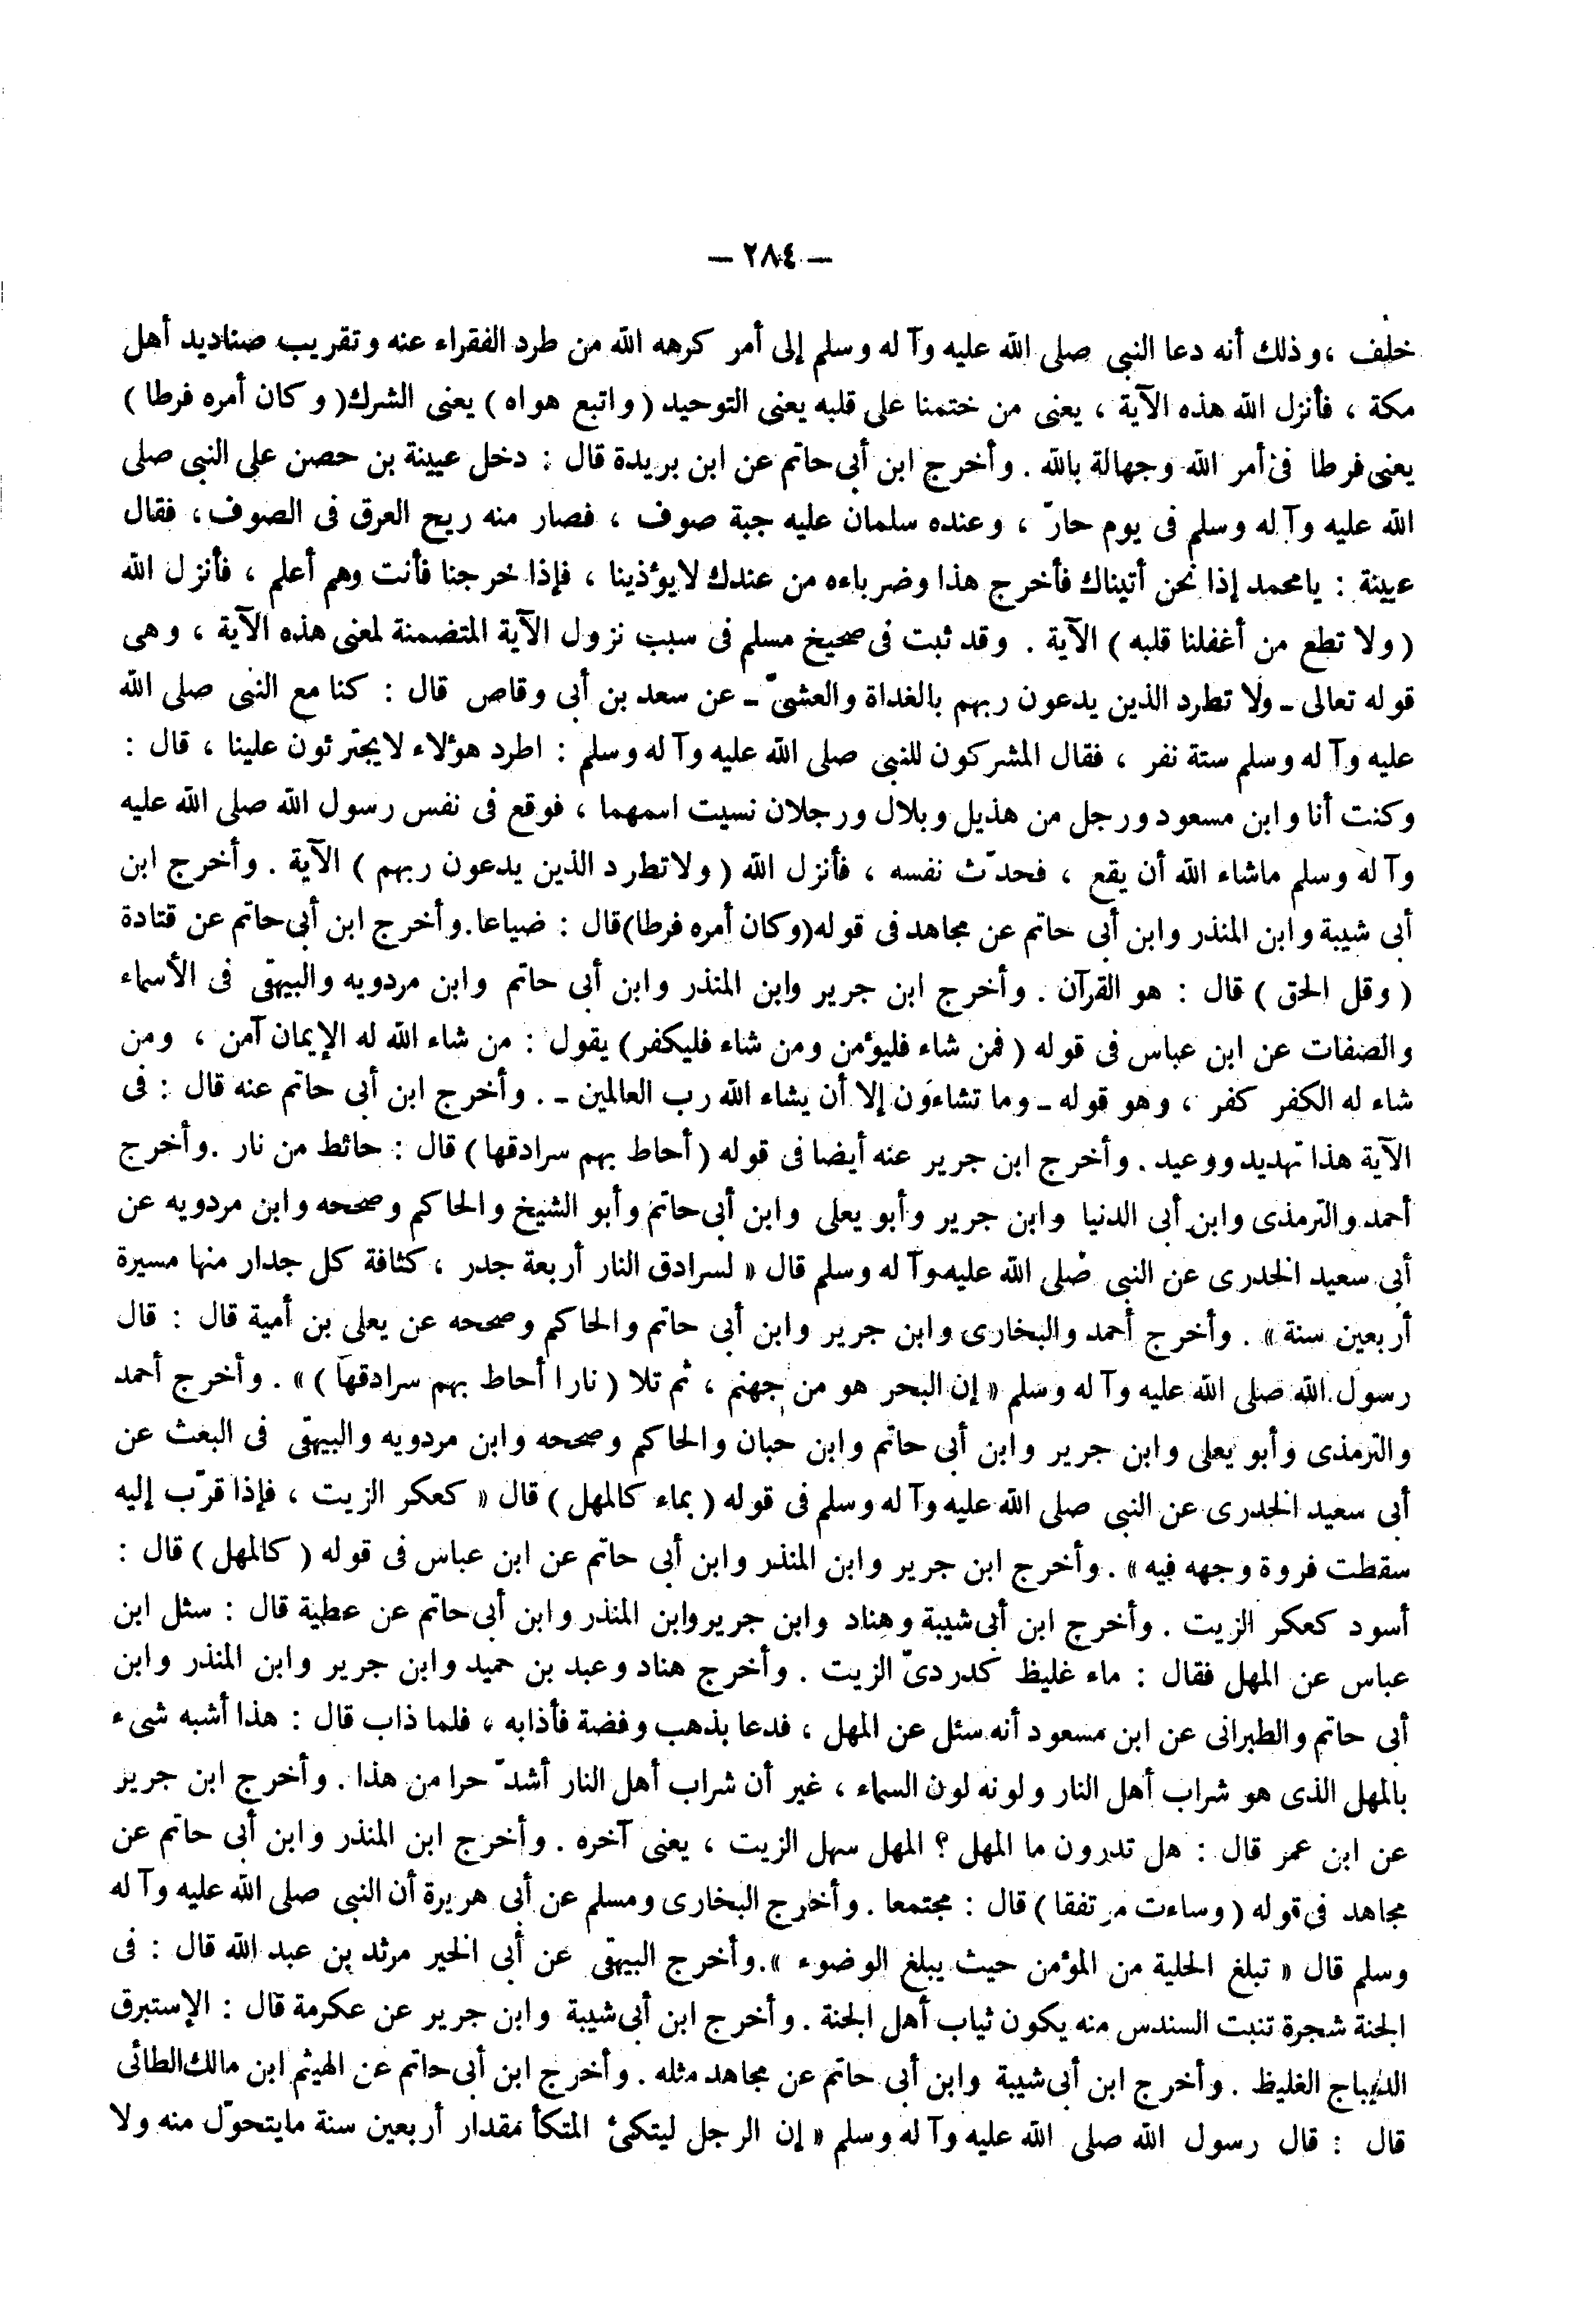 — ٢٨٤ —
خلف ، وذلك أنه دعا النبى صلى الله عليه وآله وسلم إلى أمر كرهه الله من طرد الفقراء عنه وتقريب صناديد أهل
مكة ، فأنزل الله هذه الآية ، يعنى من ختمنا على قلبه يعنى التوحيد ( واتبع هواه ) يعنى الشرك ( وكان أمره فرطا )
يعنى فرطا فى أمر الله وجهالة بالله . وأخرج ابن أبى حاتم عن ابن بريدة قال : دخل عيينة بن حصن على النبى صلى
الله عليه وآله وسلم فى يوم حارّ ، وعنده سلمان عليه جبة صوف ، فصار منه ريح العرق فى الصوف ، فقال
عيينة : يا محمد إذا نحن أتيناك فأخرج هذا وضرباءه من عندك لا يؤذينا ، فإذا خرجنا فأنت وهم أعلم ، فأنزل الله
( ولا تطع من أغفلنا قلبه ) الآية . وقد ثبت فى صحيح مسلم فى سبب نزول الآية المتضمنة لمعنى هذه الآية ، وهى
قوله تعالى ـ ولا تطرد الذين يدعون ربهم بالغداة والعشىّ ـ عن سعد بن أبى وقاص قال : كنا مع النبى صلى الله
عليه وآله وسلم ستة نفر ، فقال المشركون للنبى صلى الله عليه وآله وسلم : اطرد هؤلاء لا يجترئون علينا ، قال :
وكنت أنا وابن مسعود ورجل من هذيل وبلال ورجلان نسيت اسمهما ، فوقع فى نفس رسول الله صلى الله عليه
وآله وسلم ماشاء الله أن يقع ، فحدّث نفسه ، فأنزل الله ( ولا تطرد الذين يدعون ربهم ) الآية . وأخرج ابن
أبى شيبة وابن المنذر وابن أبى حاتم عن مجاهد فى قوله (وكان أمره فرطا) قال : ضياعا. وأخرج ابن أبى حاتم عن قتادة
( وقل الحق ) قال : هو القرآن . وأخرج ابن جرير وابن المنذر وابن أبى حاتم وابن مردويه والبيهقى فى الأسماء
والصفات عن ابن عباس فى قوله ( فمن شاء فليؤمن ومن شاء فليكفر) يقول : من شاء الله له الإيمان آمن ، ومن
شاء له الكفر كفر ، وهو قوله ـ وما تشاءون إلا أن يشاء الله رب العالمين ـ . وأخرج ابن أبى حاتم عنه قال : فى
الآية هذا تهديد ووعيد . وأخرج ابن جرير عنه أيضا فى قوله ( أحاط بهم سرادقها ) قال : حائط من نار . وأخرج
أحمد والترمذى وابن أبى الدنيا وابن جرير وأبو يعلى وابن أبى حاتم وأبو الشيخ والحاكم وصححه وابن مردويه عن
أبى سعيد الخدرى عن النبى صلى الله عليه وآله وسلم قال « لسرادق النار أربعة جدر ، كثافة كل جدار منها مسيرة
أربعين سنة » . وأخرج أحمد والبخارى وابن جرير وابن أبى حاتم والحاكم وصححه عن يعلى بن أمية قال : قال
رسول الله صلى الله عليه وآله وسلم « إن البحر هو من جهنم ، ثم تلا ( نارا أحاط بهم سرادقها ) » . وأخرج أحمد
والترمذى وأبو يعلى وابن جرير وابن أبى حاتم وابن حبان والحاكم وصححه وابن مردويه والبيهقى فى البعث عن
أبى سعيد الخدرى عن النبى صلى الله عليه وآله وسلم فى قوله ( بماء كالمهل ) قال « كعكر الزيت ، فإذا قرّب إليه
سقطت فروة وجهه فيه » . وأخرج ابن جرير وابن المنذر وابن أبى حاتم عن ابن عباس فى قوله ( كالمهل ) قال :
أسود كعكر الزيت . وأخرج ابن أبى شيبة وهناد وابن جرير وابن المنذر وابن أبى حاتم عن عطية قال : سئل ابن
عباس عن المهل فقال : ماء غليظ كدردىّ الزيت . وأخرج هناد وعبد بن حميد وابن جرير وابن المنذر وابن
أبى حاتم والطبرانى عن ابن مسعود أنه سئل عن المهل ، فدعا بذهب وفضة فأذابه ، فلما ذاب قال : هذا أشبه شىء
بالمهل الذى هو شراب أهل النار ولونه لون السماء ، غير أن شراب أهل النار أشدّ حرا من هذا . وأخرج ابن جرير
عن ابن عمر قال : هل تدرون ما المهل ؟ المهل سهل الزيت ، يعنى آخره . وأخرج ابن المنذر وابن أبى حاتم عن
مجاهد فى قوله ( وساءت مرتفقا ) قال : مجتمعا . وأخرج البخارى ومسلم عن أبى هريرة أن النبى صلى الله عليه وآله
وسلم قال « تبلغ الحلية من المؤمن حيث يبلغ الوضوء » . وأخرج البيهقى عن أبى الخير مرثد بن عبد الله قال : فى
الجنة شجرة تنبت السندس منه يكون ثياب أهل الجنة . وأخرج ابن أبى شيبة وابن جرير عن عكرمة قال : الإستبرق
الديباج الغليظ . وأخرج ابن أبى شيبة وابن أبى حاتم عن مجاهد مثله . وأخرج ابن أبى حاتم عن الهيثم ابن مالك الطائى
قال : قال رسول الله صلى الله عليه وآله وسلم « إن الرجل ليتكئ المتكأ مقدار أربعين سنة ما يتحوّل منه ولا